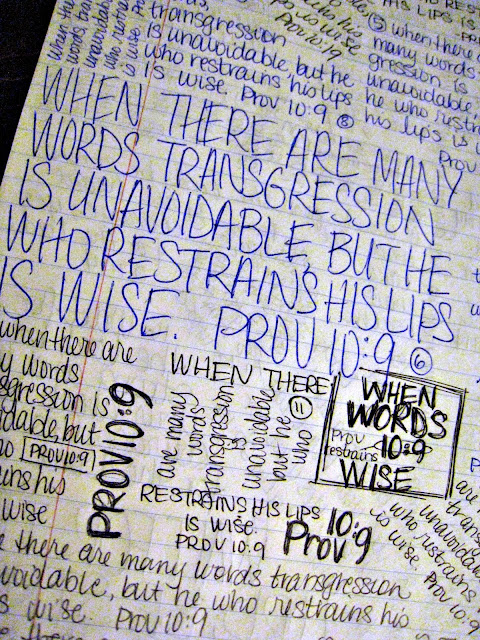 transgression
is unavoidable, but he
who restrains his lips
is wise. Prov 10:9 ⑧
Prov 10:19
⑤ when there a
many words
gression is
unavoidable,
he who restr
his lips is
Prov
WHEN THERE ARE MANY
WORDS TRANSGRESSION
IS UNAVOIDABLE, BUT HE
WHO RESTRAINS HIS LIPS
IS WISE. PROV 10:9 ⑥
when there are
y words
sgression is
idable, but
ho PROV 10:9
ins his
wise
PROV 10:9
WHEN THERE
are many
words
transgression
is
unavoidable
but he
who
⑪
RESTRAINS HIS LIPS
IS WISE.
PROV 10:9
WHEN
WORDS
Prov 10:9
restrains
WISE
10:9
Prov 9
are
trans
unavoidable
who restrains
is wise. Prov 10:9
e there are many words transgression
voidable, but he who restrains his
s wise. Prov 10:9